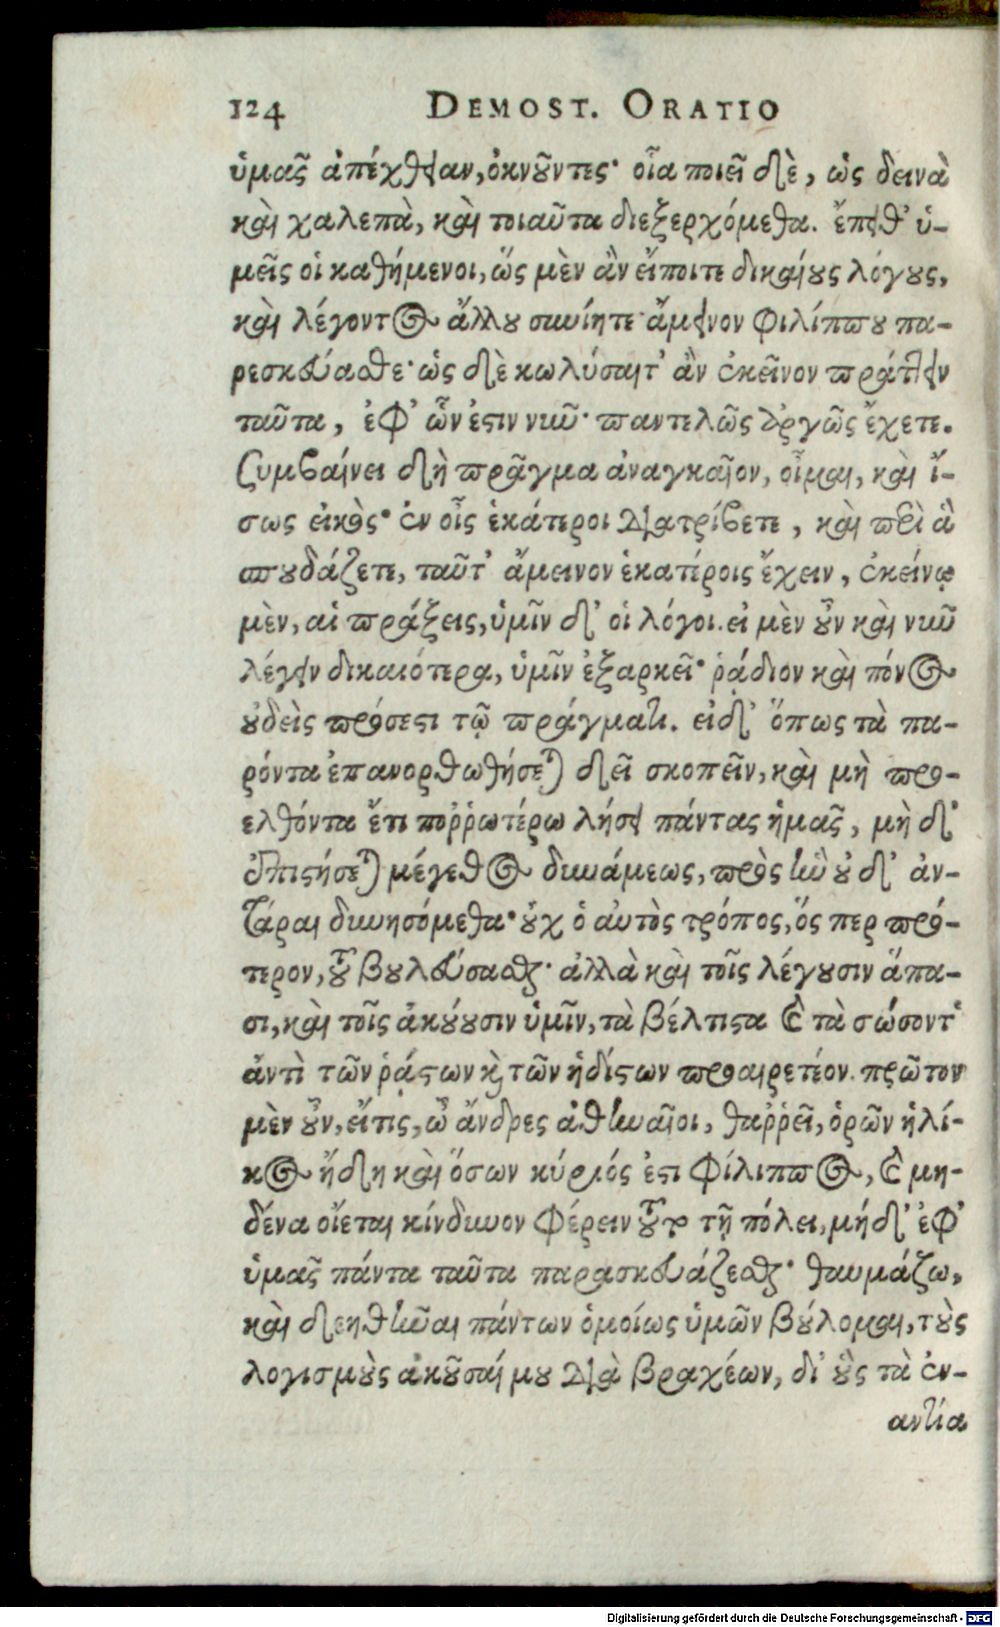 124 DEMOST. ORATIO
ὑμᾶς ἀπέχθειαν, ὀκνοῦντες· οἷα ποιεῖ δὲ, ὡς δεινὰ
καὶ χαλεπὰ, καὶ τοιαῦτα διεξερχόμεθα. ἔπειθ' ὑ-
μεῖς οἱ καθήμενοι, ὥς μὲν ἂν εἴποιτε δικαίους λόγους,
καὶ λέγοντος ἄλλου συνίητε· ἄμεινον φιλίππου πα-
ρεσκεύασθε· ὡς δὲ κωλύσαιτ' ἂν ἐκεῖνον πράττειν
ταῦτα, ἐφ' ὧν ἐστιν νῦν· παντελῶς ἀργῶς ἔχετε.
Συμβαίνει δὴ πρᾶγμα ἀναγκαῖον, οἶμαι, καὶ ἴ-
σως εἰκός· ἐν οἷς ἑκάτεροι διατρίβετε, καὶ περὶ ἃ
σπουδάζετε, ταῦτ' ἄμεινον ἑκατέροις ἔχειν, ἐκείνῳ
μὲν, αἱ πράξεις, ὑμῖν δ' οἱ λόγοι. εἰ μὲν οὖν καὶ νῦν
λέγειν δικαιότερα, ὑμῖν ἐξαρκεῖ· ῥάδιον καὶ πόνος
οὐδεὶς πρόσεστι τῷ πράγματι. εἰ δ' ὅπως τὰ πα-
ρόντα ἐπανορθωθήσεται δεῖ σκοπεῖν, καὶ μὴ προ-
ελθόντα ἔτι ποῤῥωτέρω λήσει πάντας ἡμᾶς, μὴ δ'
ἐπιστήσεται μέγεθος δυνάμεως, πρὸς ἣν οὐδ' ἀν-
τάραι δυνησόμεθα· οὐχ ὁ αὐτὸς τρόπος, ὅς περ πρό-
τερον, τοῦ βουλεύσασθαι· ἀλλὰ καὶ τοῖς λέγουσιν ἅπα-
σι, καὶ τοῖς ἀκούουσιν ὑμῖν, τὰ βέλτιστα καὶ τὰ σώσοντ'
ἀντὶ τῶν ῥᾴστων καὶ τῶν ἡδίστων προαιρετέον. πρῶτον
μὲν οὖν, εἴ τις, ὦ ἄνδρες ἀθηναῖοι, θαῤῥεῖ, ὁρῶν ἡλί-
κος ἤδη καὶ ὅσων κύριός ἐστι Φίλιππος, καὶ μη-
δένα οἴεται κίνδυνον φέρειν τοῦτο τῇ πόλει, μή δ' ἐφ'
ὑμᾶς πάντα ταῦτα παρασκευάζεσθαι· θαυμάζω,
καὶ δεηθῆναι πάντων ὁμοίως ὑμῶν βούλομαι, τοὺς
λογισμοὺς ἀκοῦσαί μου διὰ βραχέων, δι' οὓς τὰ ἐν-
αντία
Digitalisierung gefördert durch die Deutsche Forschungsgemeinschaft - DFG